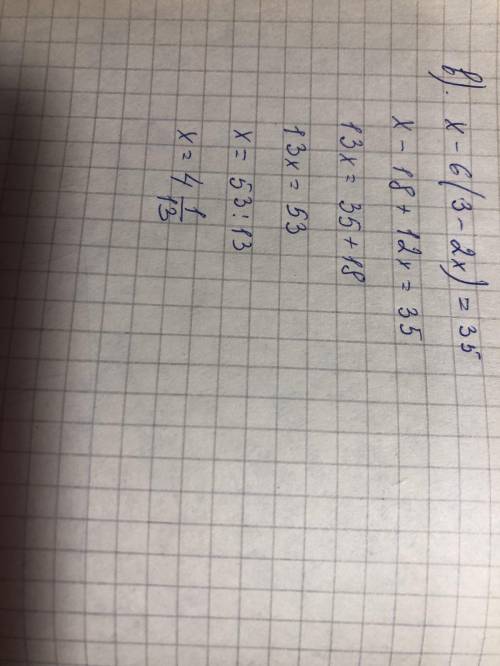 в). x - 6(3 - 2x) = 35
x - 18 + 12x = 35
13x = 35 + 18
13x = 53
x = 53 : 13
x = 4 1/13